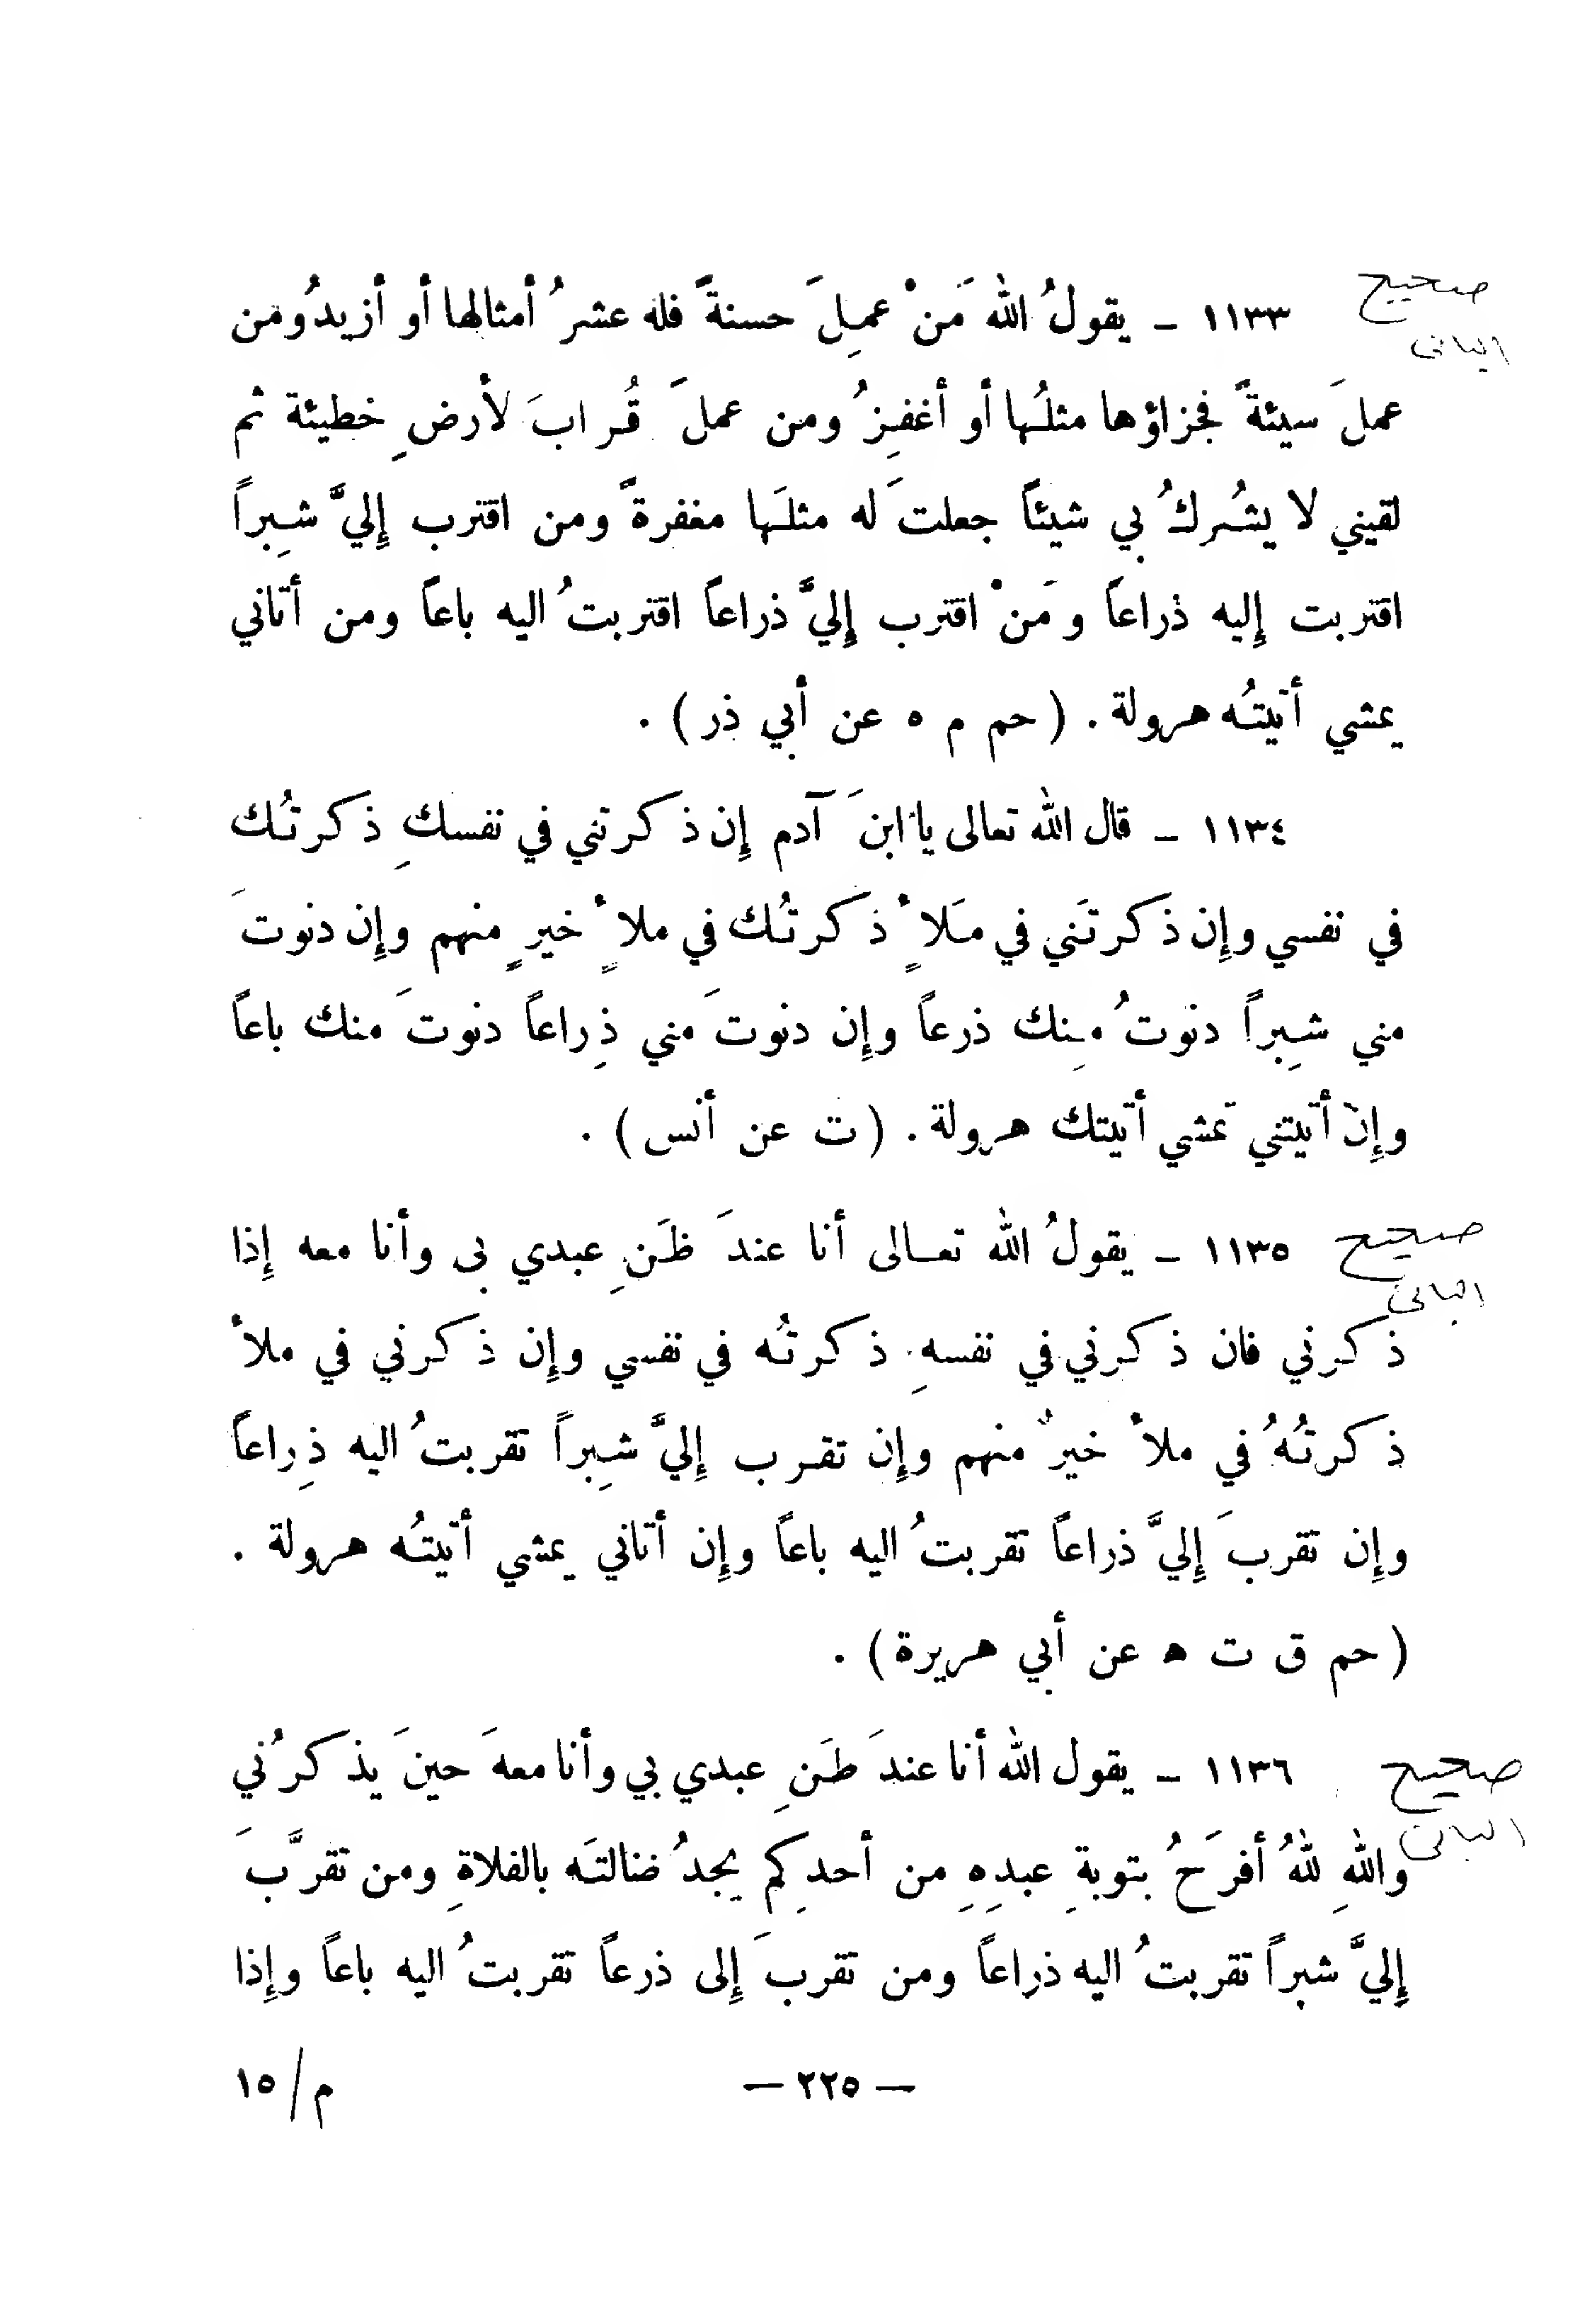 صحيح
ألباني
١١٣٣ - يقولُ الله مَنْ عمِلَ حسنةً فله عشرُ أمثالها أو أزيدُ ومن
عملَ سيئةً فجزاؤها مثلُها أو أغفِرُ ومن عملَ قُرابَ لأرضِ خطيئة ثم
لقيني لا يشُركُ بي شيئاً جعلتَ له مثلَها مغفرةً ومن اقترب إِليَّ شِبراً
اقتربت إِليه ذراعاً ومَنْ اقترب إِليَّ ذراعاً اقتربتُ اليه باعاً ومن أتاني
يمشي أتيتُه هرولة . ( حم م ه عن أبي ذر ) .
١١٣٤ - قال الله تعالى يا ابنَ آدم إِن ذكرتني في نفسكِ ذكرتُك
في نفسي وإِن ذكرتَني في مَلأٍ ذكرتُك في ملأٍ خيرٍ منهم وإِن دنوتَ
مني شِبراً دنوتُ مِنك ذرعاً وإِن دنوتَ مني ذِراعاً دنوتَ منك باعاً
وإِن أتيتني تمشي أتيتك هرولة . ( ت عن أنس ) .
صحيح
البانى
١١٣٥ - يقولُ الله تعالى أنا عندَ ظَنِ عبدي بى وأنا معه إِذا
ذكرني فان ذكرني في نفسهِ ذكرتُه في نفسي وإِن ذكرني في ملأ
ذكرتُهُ في ملأ خيرٌ منهم وإِن تقرب إِليَّ شِبراً تقربتُ اليه ذِراعاً
وإِن تقربَ إِليَّ ذراعاً تقربتُ اليه باعاً وإِن أتاني يمشي أتيتُه هرولة .
( حم ق ت ه عن أبي هريرة ) .
صحيح
البانى
١١٣٦ - يقول الله أنا عندَ ظَنِ عبدي بي وأنا معهَ حينَ يذكرُني
واللهِ للهُ أفرَحُ بتوبةِ عبدِهِ من أحدِكم يجدُ ضالتَه بالفلاةِ ومن تقرَّبَ
إِليَّ شبراً تقربتُ اليه ذراعاً ومن تقربَ إِلى ذرعاً تقربتُ اليه باعاً وإِذا
- ٢٢٥ -
م/١٥